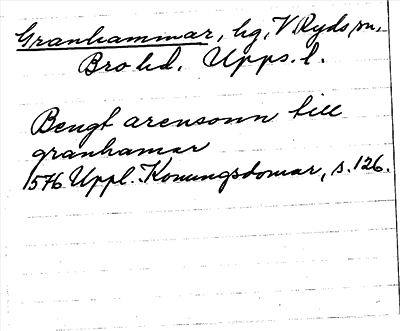 Granhammar, hg, V Ryds sn,
Bro hd. Upps. l.
Bengt arensonn till
granhamar
1576 Uppl. Konungsdomar, s. 126.